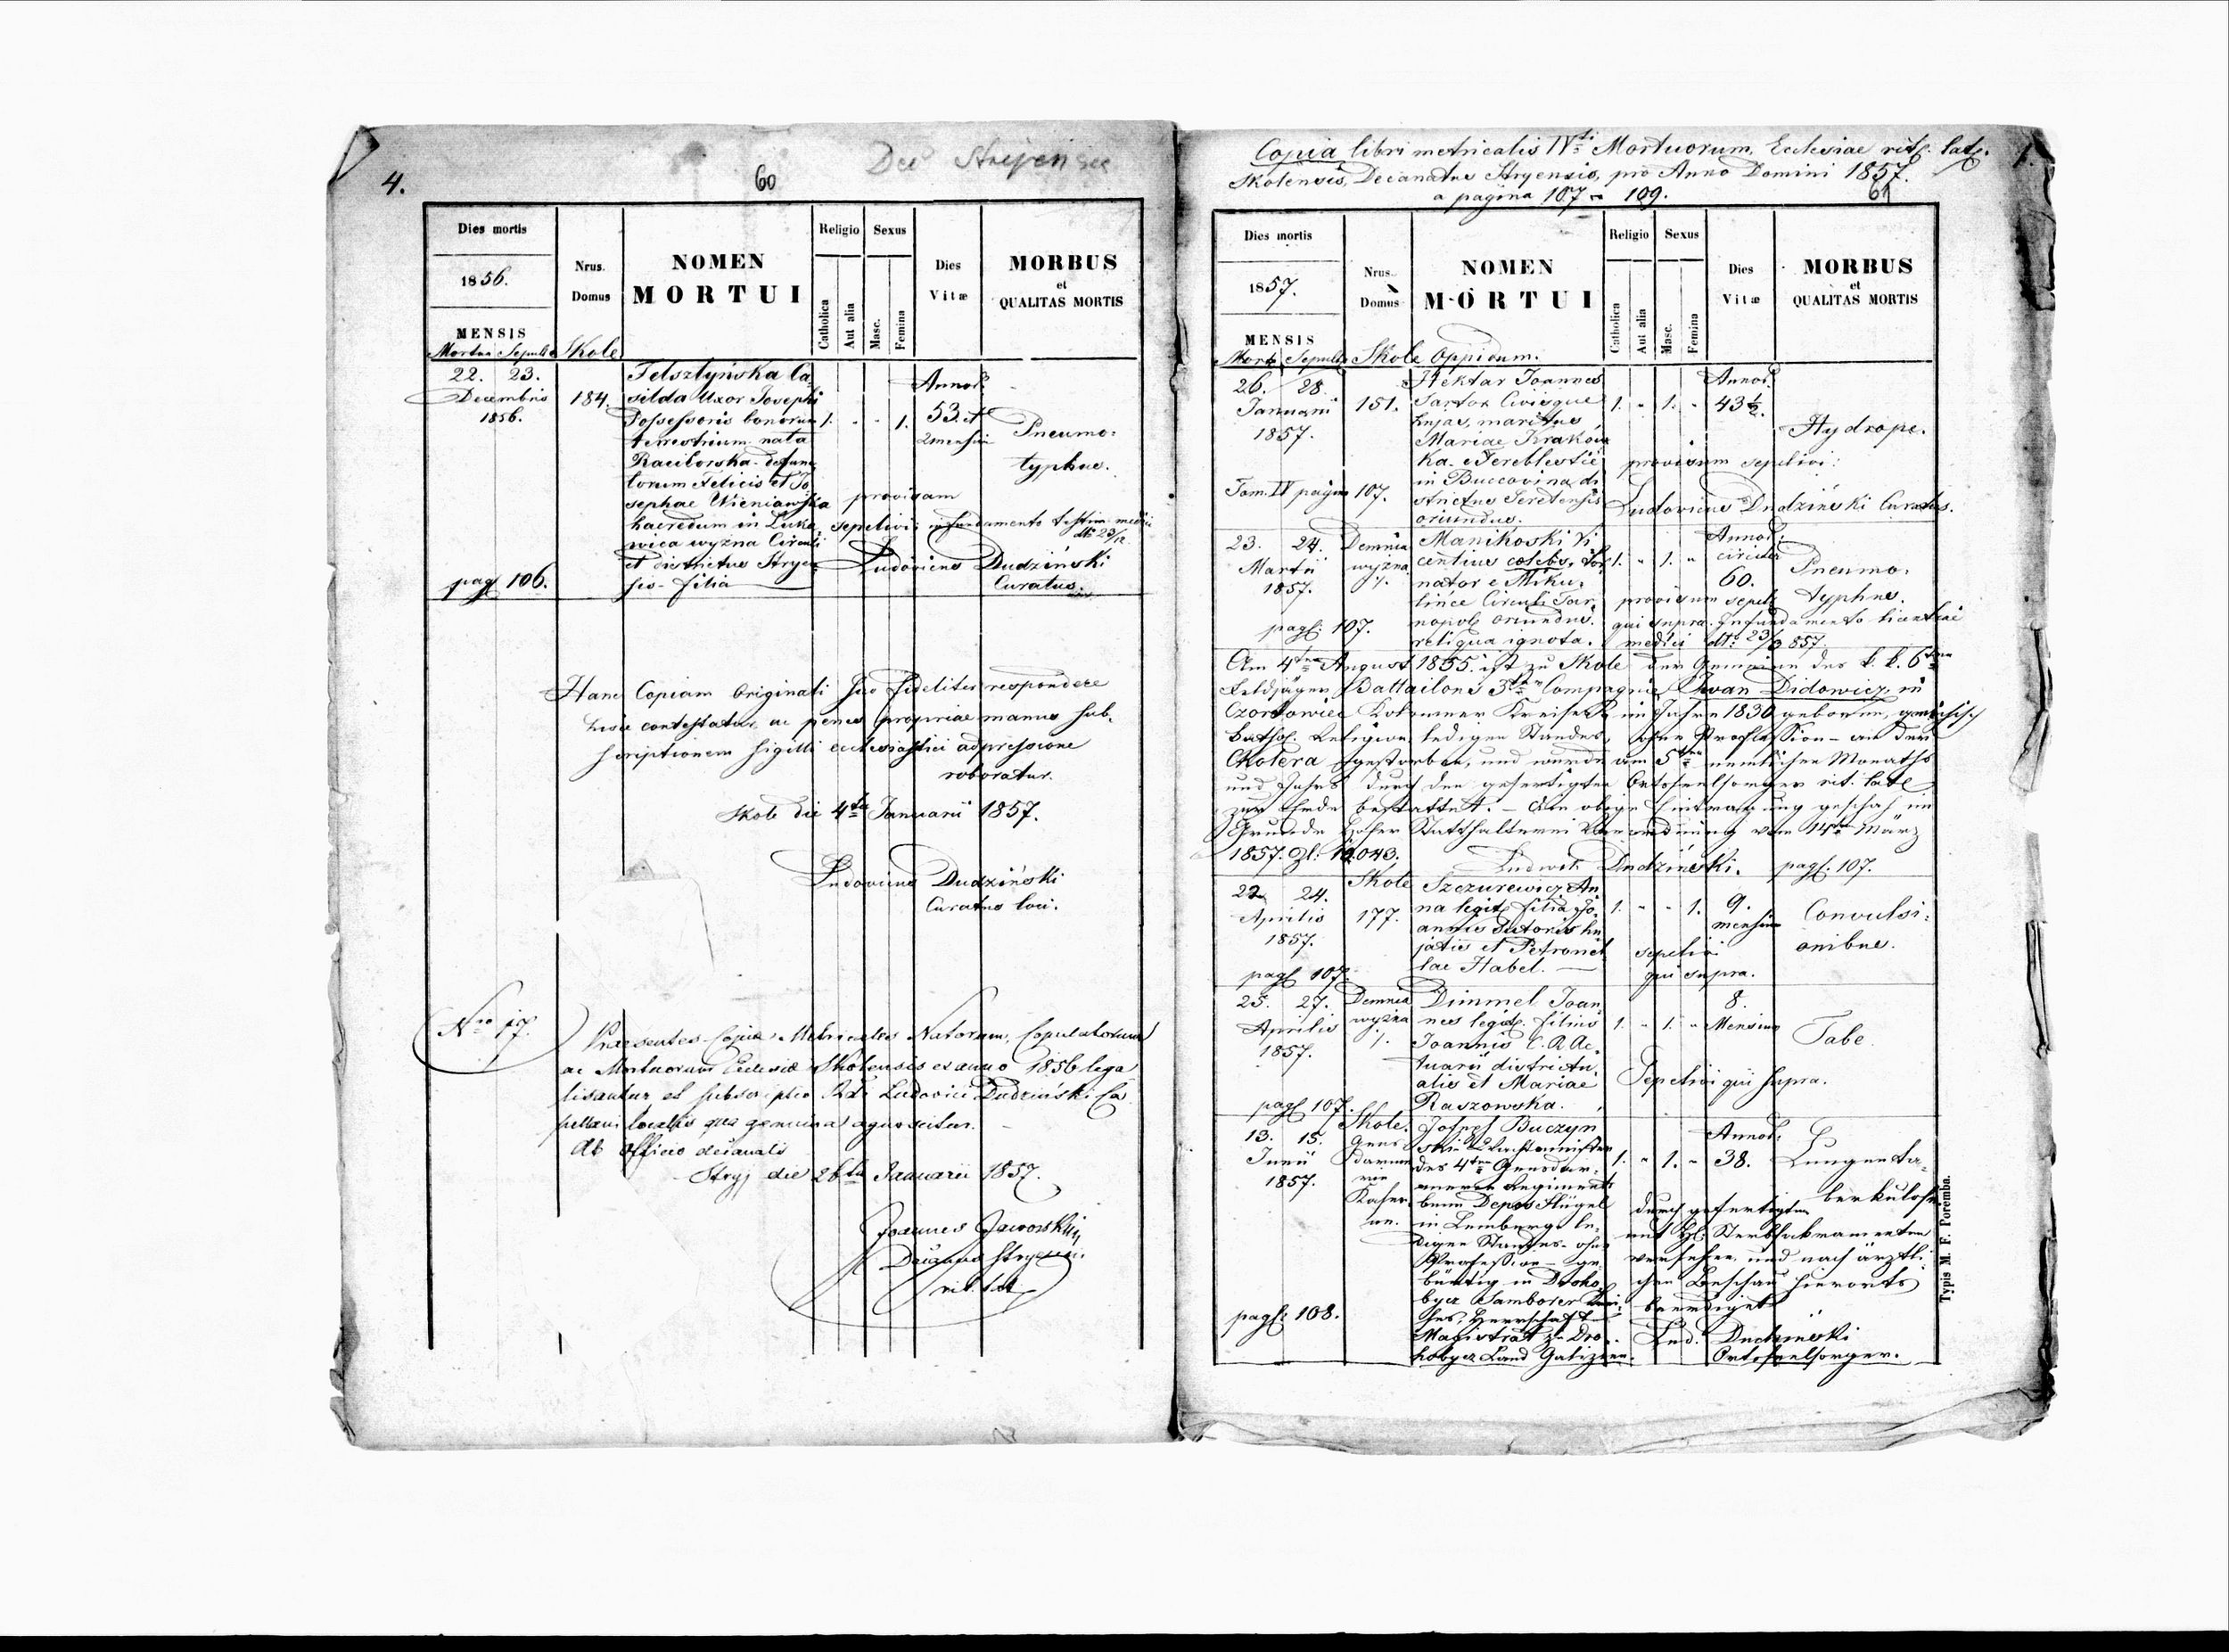 4.
60
Dec Stryjensee
Dies mortis
1856.
MENSIS
Mortui Sepulti
Nrus.
Domus
Skole
NOMEN
MORTUI
Religio
Catholica
Aut alia
Sexus
Masc.
Femina
Dies
Vitæ
MORBUS
et
QUALITAS MORTIS
22. 23.
Decembris
1856.
pag. 106.
184.
Telsztyńska Ca
silda Uxor Josephi
Possessoris bonorum
terrestrium nata
Raciborska defunc
torum Felicis et Jo
sephae Wieniawska
haeredum in Luka
wica wyżna Circuli
et districtus Stryen
sis - filia
1. - - 1.
Annor.
53. et
2 mensium
Pneumo:
typhus.
provisam
sepelivi in fundamento testim. medici
dto 23/12
Ludovicus Dudziński
Curatus.
Hanc Copiam Originali suo fideliter respondere
hisce contestatur ac penes propriae manus sub,
scriptionem sigilli ecclesiastici adpressione
roboratur.
Skole die 4ta Januarii 1857.
Ludovicus Dudziński
Curatus loci.
Nro 17.
Praesentes Copiae Metricales Natorum, Copulatorum
ac Mortuorum Ecclesiae Skolensis ex anno 1856 lega
lisantur et subscriptio Rdi Ludovici Dudziński Ca
pellani localis qua genuina agnoscitur.
Ab Officio decanali
Stryj die 26ta Januarii 1857.
Joannes Jaworski
Decanus Stryensis
rit. lat.
Copia libri metricalis IVti Mortuorum, Ecclesiae rit. lat.
Skolensis, Decanatus Stryensis, pro Anno Domini 1857.
a pagina 107 - 109.
1.
61
Dies mortis
1857.
MENSIS
Mort. Sepulti
Nrus.
Domus
Skole oppidum.
NOMEN
MORTUI
Religio
Catholica
Aut alia
Sexus
Masc.
Femina
Dies
Vitæ
MORBUS
et
QUALITAS MORTIS
26. 28.
Januarii
1857.
Tom. IV pagina 107.
151.
Hektar Joannes
Sartor Civisque
hujas, maritus
Mariae Krakow
ka. e Tereblestie
in Buccovina di
strictus Seretensis
oriundus.
1. - 1. -
Annor.
43 1/2.
Hydrope.
provisum sepelivi:
Ludovicus Dudziński Curatus.
23. 24.
Martii
1857.
pag. 107.
Demnia
wyżna
1.
Manikoski Vi
centius coelebs, tor
nator e Miku,
lińce Circuli Tar,
nopol. oriundus.
reliqua ignota.
1. - 1. -
Annor.
circiter
60.
Pneumo,
typhus.
provisum sepel.
qui supra. In fundamento licentiae
medici dto 23/3 857
Am 4ten August 1855 ist zu Skole der Gemeine des k. k. 6ten
Feldjäger Battailons 3ten Compagnie Iwan Didowicz in
Czortowiec Kolomeer Kreises im Jahre 1830 geboren, griechisch
kathol. Religion, ledigen Standes, ohne Profession - an der
Cholera gestorben, und wurde am 5ten nemlichen Monaths
und Jahrs durch den gefertigten Ortsseelsorger rit. lat.
zur Erde bestattet. - Die obige Eintragung geschah im
Grunde hoher Statthalterei Verordnung vom 14ten März
1857. Zl: 10.043.
Ludwik Dudziński. pag. 107.
22 24.
Aprilis
1857.
pag. 107.
Skole
177.
Szczurewicz An
na legit. filia Jo,
annis Sutoris hu
jatis et Petronel
lae Habel.
1. - - 1.
9.
mensium
Convulsi:
onibus.
sepelivi
qui supra.
25. 27.
Aprilis
1857.
pag. 107.
Demnia
wyżna
1.
Dimmel Joan
nes legit. filius
Joannis C. R. Ac,
tuarii districtu,
alis et Mariae
Raszowska.
1. - 1. -
8.
Mensium
Tabe
Sepelivi qui supra.
13. 15.
Junii
1857.
pag. 108.
Skole.
Gens
darme
rie
Kaser
ne.
Josef Buczyn
ski Wachtmeister
des 4ten Gensdar,
merie Regiments
beim Depos Flügel
in Lemberg le,
digen Standes - ohne
Profession - ge
bürtig in Droho
bycz Samborer Krei,
ses, Herrschaft
Magistrat zu Dro,
hobycz Land Galizien.
1. - 1. -
Annor.
38.
Lungen tu,
berkulose
durch gefertigten
mit hl. Sterbsakramenten
versehen, und nach ärztli,
chen Beschau hierorts
beerdiget
Lud. Dudziński
Ortsseelsorger.
Typis M. F. Poremba.